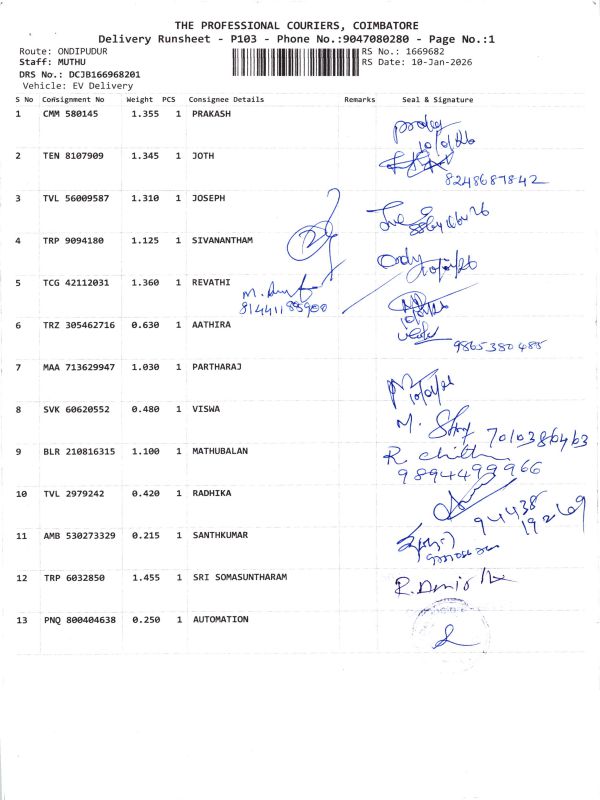 THE PROFESSIONAL COURIERS, COIMBATORE
Delivery Runsheet - P103 - Phone No.:9047080280 - Page No.:1
Route: ONDIPUDUR
RS No.: 1669682
Staff: MUTHU
RS Date: 10-Jan-2026
DRS No.: DCJB166968201
Vehicle: EV Delivery
S No Consignment No Weight PCS Consignee Details Remarks Seal & Signature
1 CMM 580145 1.355 1 PRAKASH
2 TEN 8107909 1.345 1 JOTH
8248687842
3 TVL 56009587 1.310 1 JOSEPH
4 TRP 9094180 1.125 1 SIVANANTHAM
5 TCG 42112031 1.360 1 REVATHI
6 TRZ 305462716 0.630 1 AATHIRA
9865380485
7 MAA 713629947 1.030 1 PARTHARAJ
8 SVK 60620552 0.480 1 VISWA
9 BLR 210816315 1.100 1 MATHUBALAN
9894499966
10 TVL 2979242 0.420 1 RADHIKA
94438
19269
11 AMB 530273329 0.215 1 SANTHKUMAR
12 TRP 6032850 1.455 1 SRI SOMASUNTHARAM
13 PNQ 800404638 0.250 1 AUTOMATION